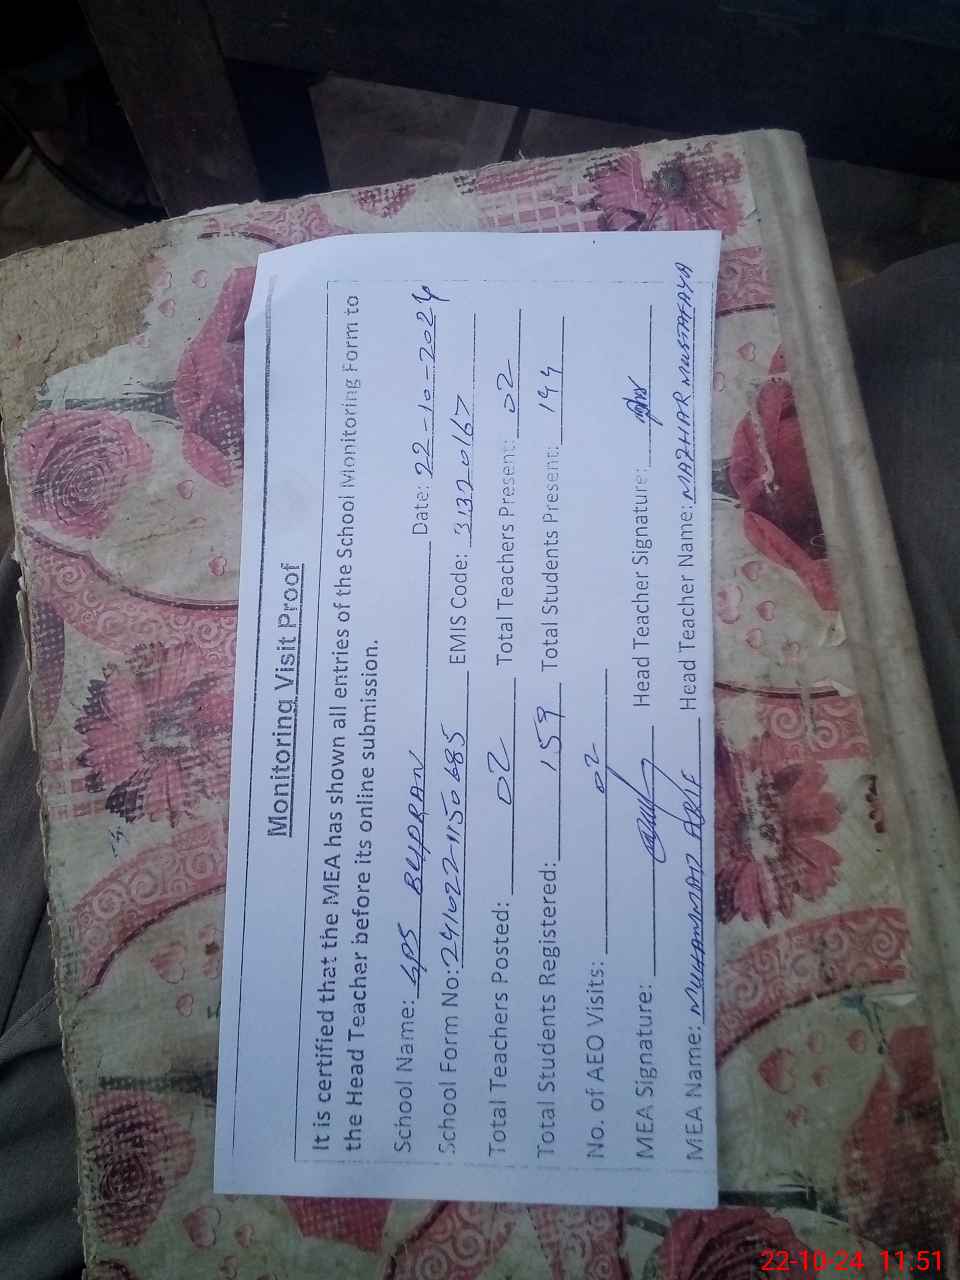 Monitoring Visit Proof
It is certified that the MEA has shown all entries of the School Monitoring Form to
the Head Teacher before its online submission.
School Name: GPS BUDRAN Date: 22-10-2024
School Form No: 2410221150685 EMIS Code: 31320167
Total Teachers Posted: 02 Total Teachers Present: 02
Total Students Registered: 159 Total Students Present: 144
No. of AEO Visits: 02
MEA Signature: Head Teacher Signature:
MEA Name: MUHAMMAD ARIF Head Teacher Name: MAZHAR MUSTAFAYA
22-10-24 11.51